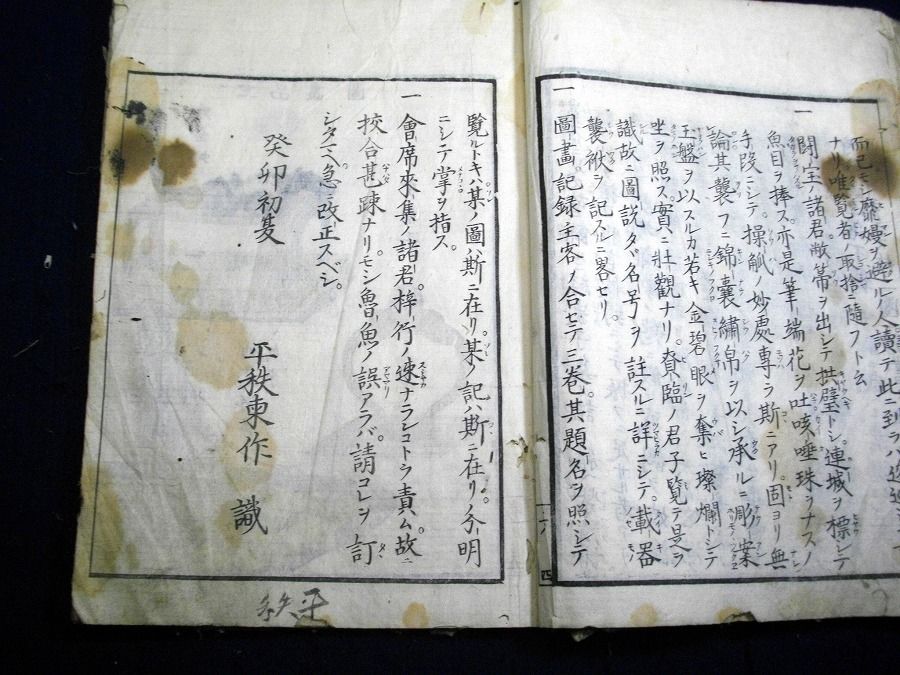 而已モシ靡嫚ヲ避ルノ人讀テ此ニ到ラハ
ナリ唯覧者ノ取捨ニ隨フト云
一
鬪宝ノ諸君敝箒ヲ出シテ拱璧トシ。連城ヲ標シテ
魚目ヲ捧ス。亦是筆端花ヲ吐咳唾珠ヲナスノ
手段ニシテ。操觚ノ妙處専ラ斯ニアリ。固ヨリ無
論其襲フニ錦嚢繍帛ヲ以シ承ルニ彫案
玉盤ヲ以スルカ若キ金碧眼ヲ奪ヒ璨爛トシテ
坐ヲ照ス實ニ壯觀ナリ。賁臨ノ君子覧テ
識故ニ圖説タヾ名号ヲ註スルニ詳ニシテ。載器
襲袱ヲ記スルニ畧セリ。
一
圖畫記録主客ノ合セテ三巻。其題名ヲ照シテ
覧ルトキハ某ノ圖ハ斯ニ在リ。某ノ記ハ斯ニ在リ。分明
ニシテ掌ヲ指ス。
一
會席來集ノ諸君。梓行ノ速ナランコトヲ責ム。故ニ
挍合甚踈ナリ。モシ魯魚ノ誤アラバ。請コレヲ訂
シタマヘ急ニ改正スベシ。
癸卯初夏
平秩東作 識
平秩